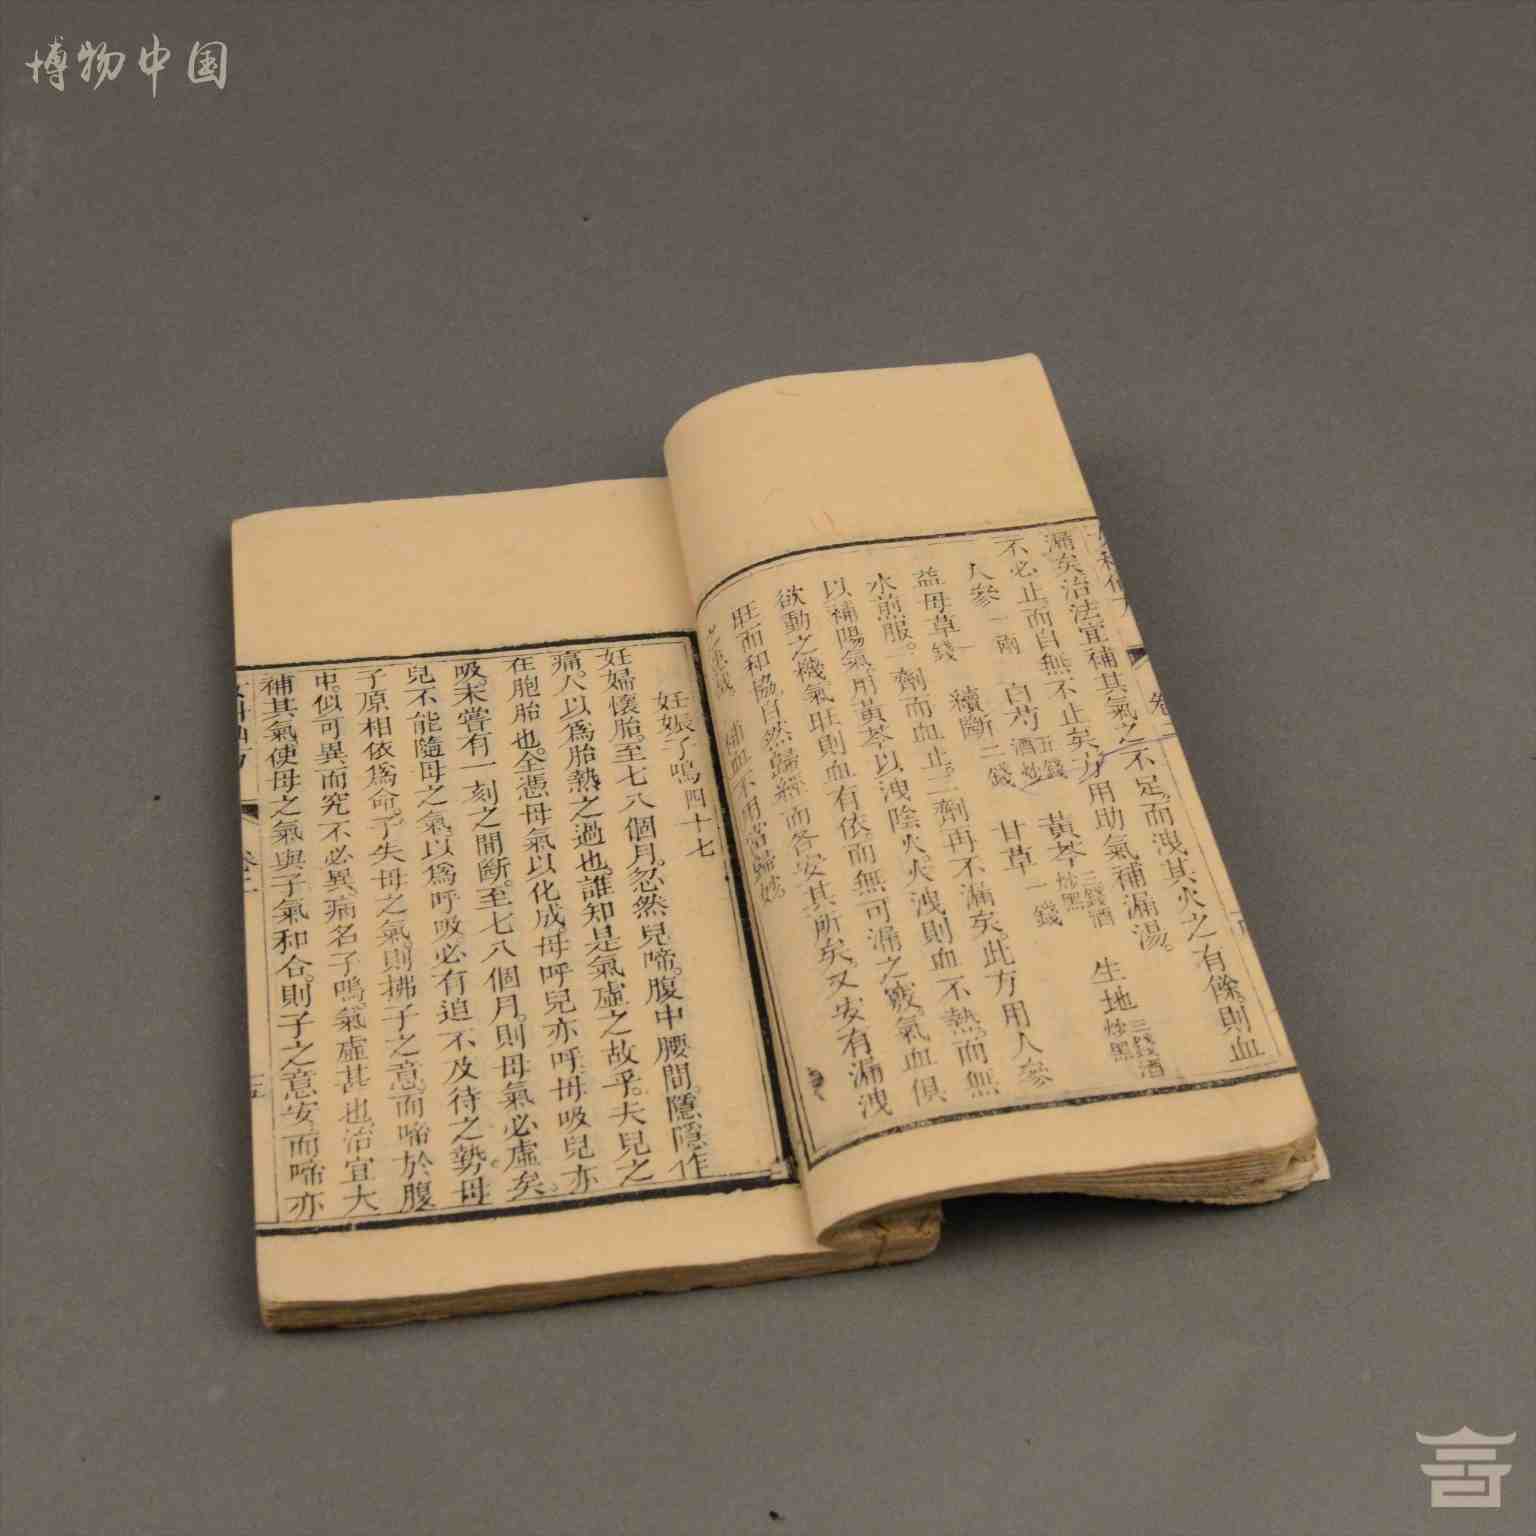 博物中国
漏矣治法宜補其氣之不足而洩其火之有餘則血
不必止而自無不止矣方用助氣補漏湯。
人參一兩 白芍五錢酒炒 黃芩三錢酒炒黑 生地三錢酒炒黑
益母草一錢 續斷二錢 甘草一錢
水煎服。一劑而血止二劑再不漏矣。此方用人參
以補陽氣用黃芩以洩陰火火洩則血不熱而無
欲動之機氣旺則血有依而無可漏之竅氣血俱
旺而和協自然歸經而各安其所矣又安有漏洩
補血不用當歸妙
妊娠子鳴四十七
妊婦懷胎。至七八個月。忽然兒啼。腹中腰間。隱隱作
痛。人以爲胎熱之過也。誰知是氣虛之故乎。夫兒之
在胞胎也。全憑母氣以化成。母呼兒亦呼。母吸兒亦
吸。未嘗有一刻之間斷。至七八個月。則母氣必虛矣。
兒不能隨母之氣以爲呼吸必有迫不及待之勢母
子原相依爲命。子失母之氣則拂子之意而啼於腹
中。似可異而究不必異。病名子鳴。氣虛甚也。治宜大
補其氣使母之氣與子氣和合。則子之意安而啼亦